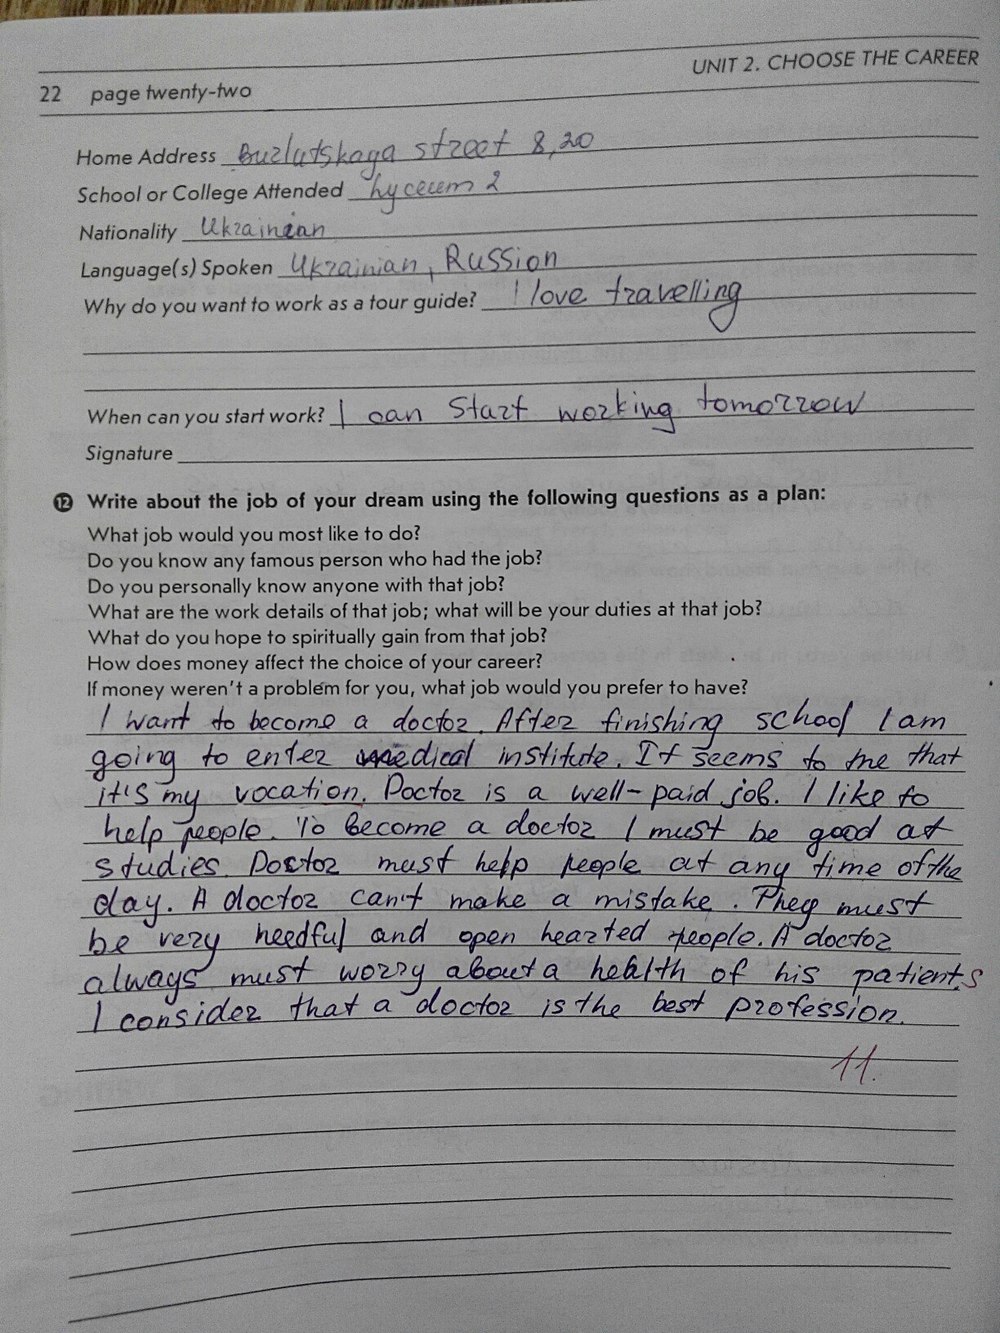 UNIT 2. CHOOSE THE CAREER
22 page twenty-two
Home Address Buzlutskaya street 8, 20
School or College Attended Lyceum 2
Nationality Ukrainian
Language(s) Spoken Ukrainian, Russion
Why do you want to work as a tour guide? I love travelling
When can you start work? I can start working tomorrow
Signature
12 Write about the job of your dream using the following questions as a plan:
What job would you most like to do?
Do you know any famous person who had the job?
Do you personally know anyone with that job?
What are the work details of that job; what will be your duties at that job?
What do you hope to spiritually gain from that job?
How does money affect the choice of your career?
If money weren't a problem for you, what job would you prefer to have?
I want to become a doctor. After finishing school I am
going to enter medical institute. It seems to me that
it's my vocation. Doctor is a well-paid job. I like to
help people. To become a doctor I must be good at
studies. Doctor must help people at any time of the
day. A doctor can't make a mistake. They must
be very heedful and open hearted people. A doctor
always must worry about a health of his patients
I consider that a doctor is the best profession.
11.